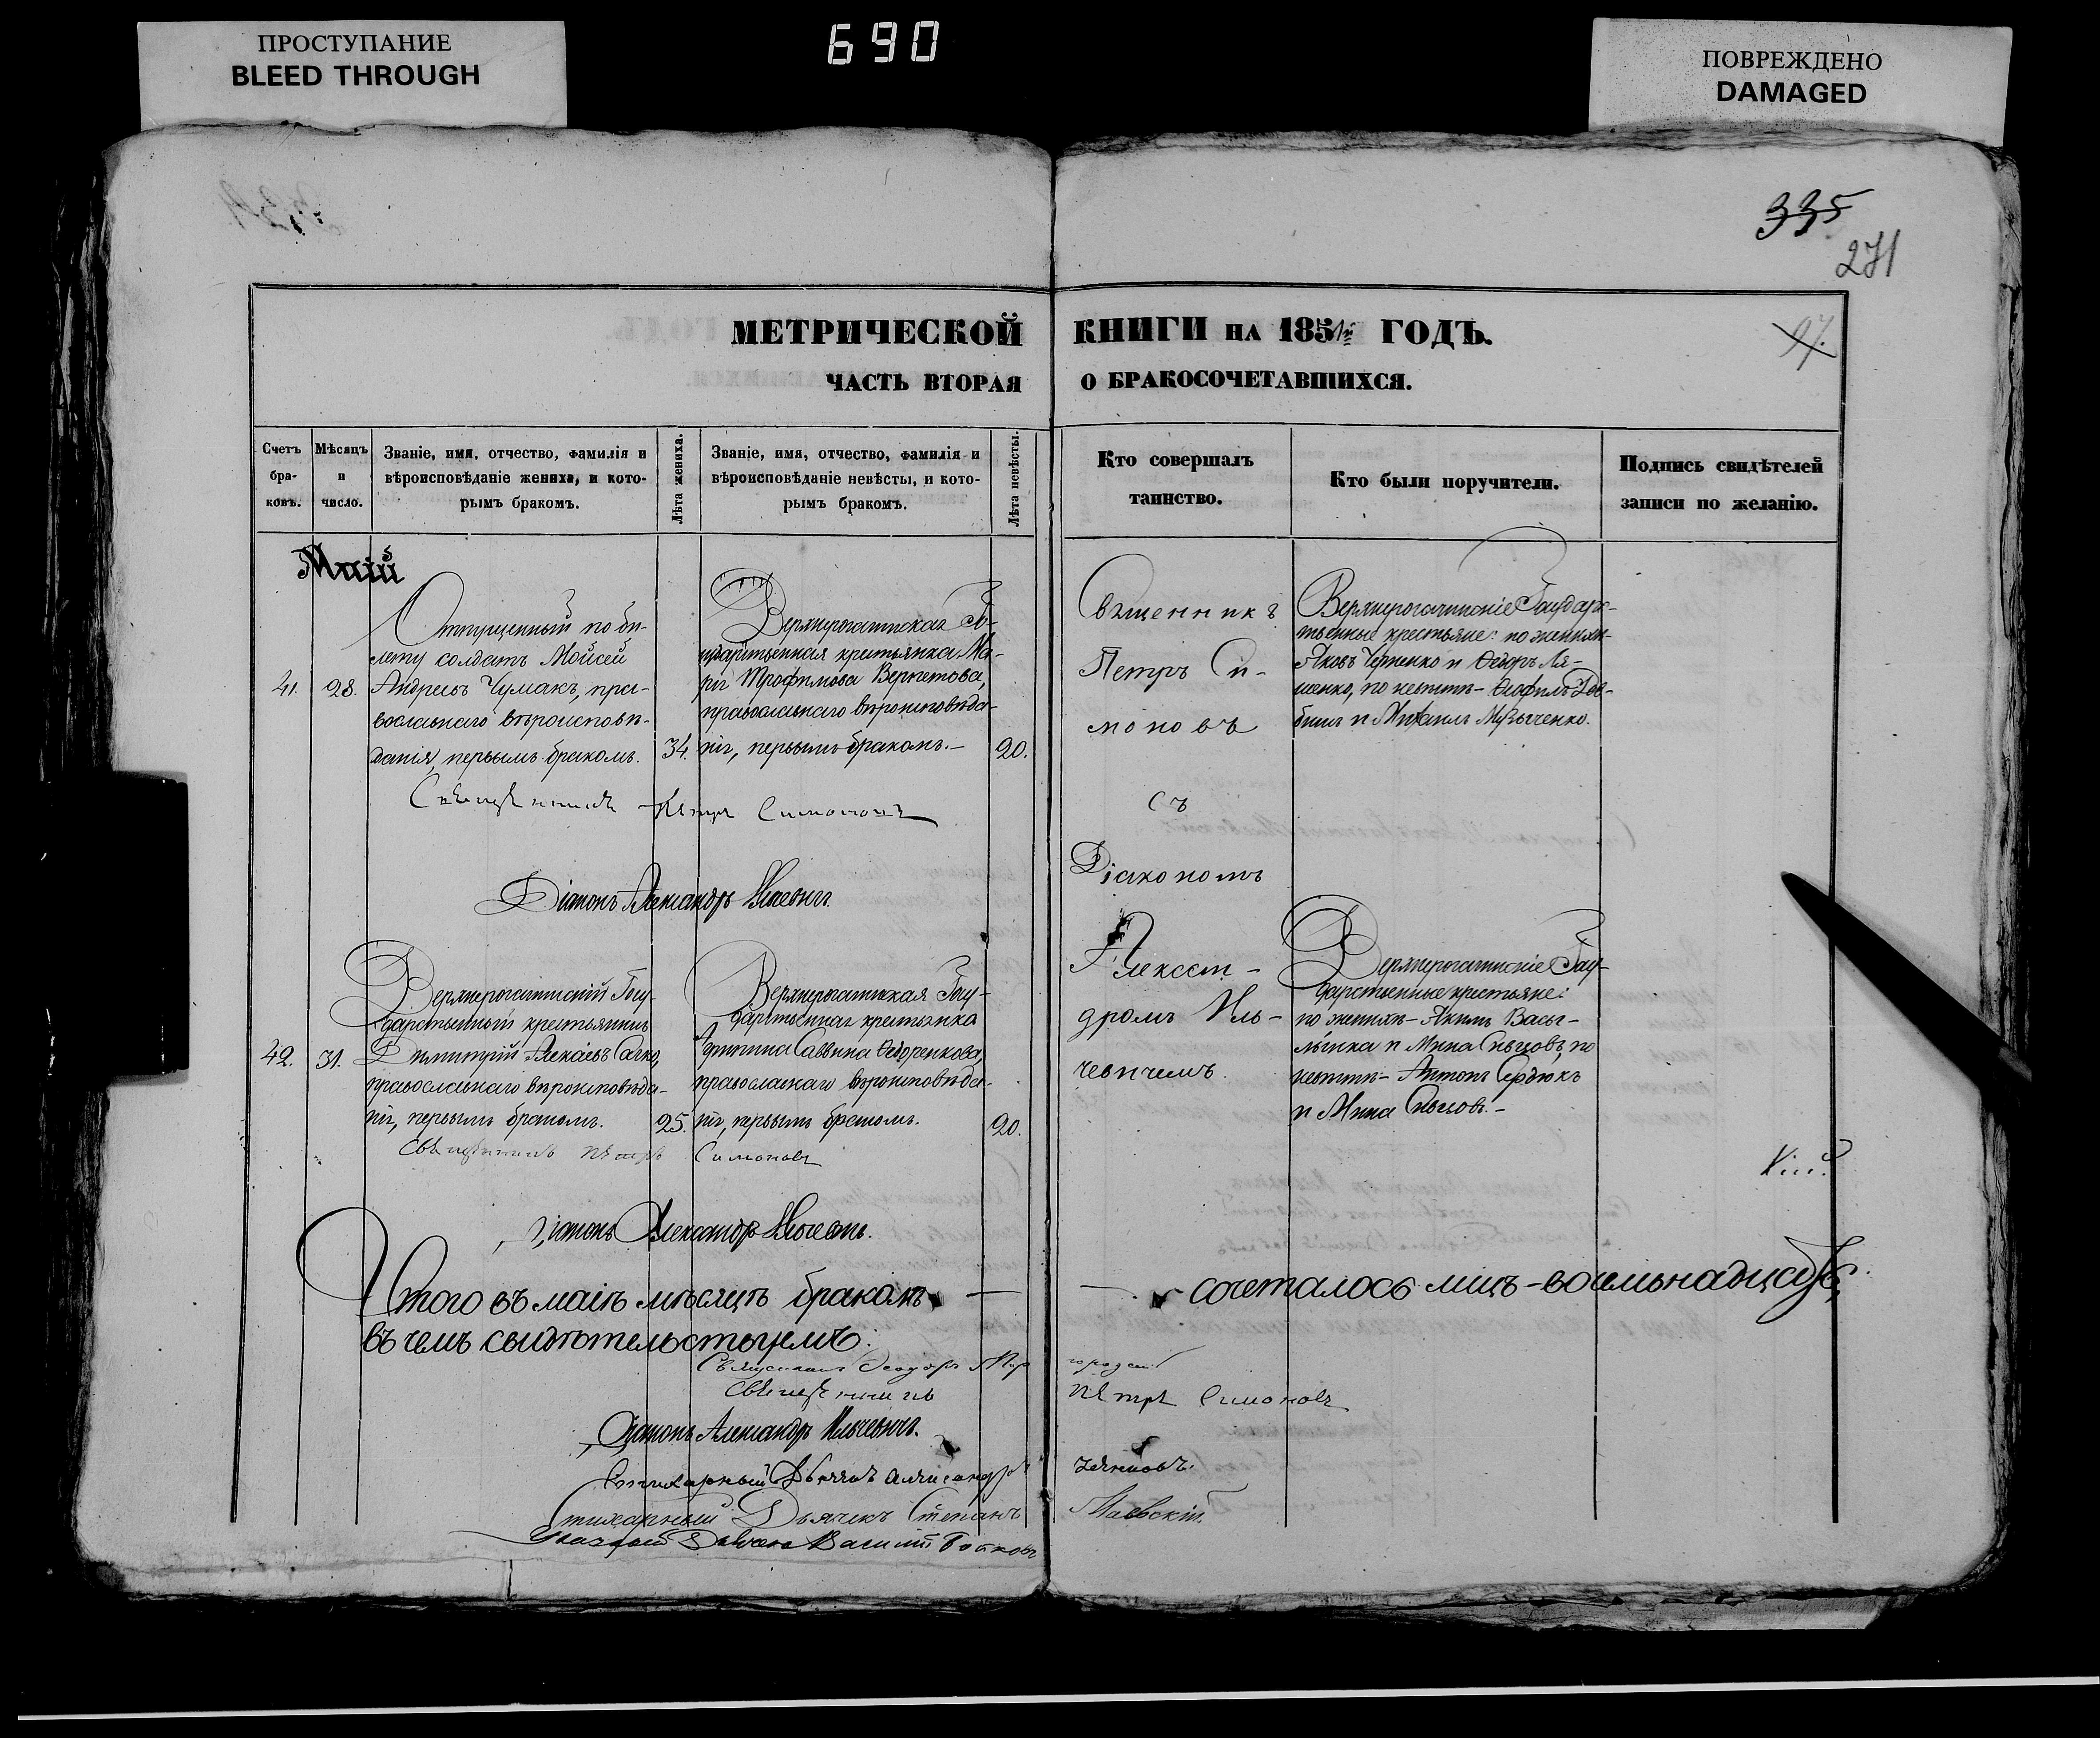 ПРОСТУПАНИЕ
BLEED THROUGH
690
ПОВРЕЖДЕНО
DAMAGED
335
271
97.
МЕТРИЧЕСКОЙ КНИГИ НА 1851й ГОДЪ.
ЧАСТЬ ВТОРАЯ О БРАКОСОЧЕТАВШИХСЯ.
Счетъ бра-ковъ.
Мѣсяцъ и число.
Званіе, имя, отчество, фамилія и
вѣроисповѣданіе жениха, и кото-
рымъ бракомъ.
Лѣта жениха.
Званіе, имя, отчество, фамилія и
вѣроисповѣданіе невѣсты, и кото-
рымъ бракомъ.
Лѣта невѣсты.
Кто совершалъ
таинство.
Кто были поручители.
Подпись свидѣтелей
записи по желанію.
Маій
41.
28.
Отпущенный по би-
лету солдатъ Мойсей
Андреевъ Чумакъ, пра-
вославнаго вѣроисповѣ-
данія, первымъ бракомъ.
34.
Верхнерогачикская Го-
сударственная крестьянка Ма-
рія Трофимова
православнаго вѣроисповѣда-
нія, первымъ бракомъ.-
20.
Священникъ
Петръ Си-
моновъ
съ
Діакономъ
Александромъ Иль-
чевичемъ.
Верхнерогачикскіе Государс-
твенные крестьяне: по женихѣ-
Яковъ и Ѳедоръ Ля-
шенко, по невѣстѣ-
и Михаилъ
Священникъ Петръ Симоновъ
Діаконъ Александръ Ильчевичъ.
42.
31.
Верхнерогачикскій Госу-
дарственный крестьянинъ
Димитрій
православнаго вѣроисповѣда-
нія, первымъ бракомъ.
25.
Верхнерогачикская Госу-
дарственная крестьянка
Агрипина Саввина Ѳедоренкова,
православнаго вѣроисповѣда-
нія, первымъ бракомъ.
20.
Верхнерогачикскіе Госу-
дарственные крестьяне:
по женихѣ- Якимъ Васи-
и Мина по
невѣстѣ- Антонъ Сердюкъ
и Мина
Священникъ Петръ Симоновъ
Діаконъ Александръ Ильчевичъ.
Итого въ маіѣ мѣсяцѣ бракомъ — — сочеталось лицъ - восемьнадцать,
въ чемъ свидѣтельствуемъ:
Священникъ Ѳеодоръ
Священникъ Петръ Симоновъ
Діаконъ Александръ Ильчевичъ.
Стихарный Дьячекъ Александръ
Стихарный Дьячекъ Степанъ Маевскій
Василій